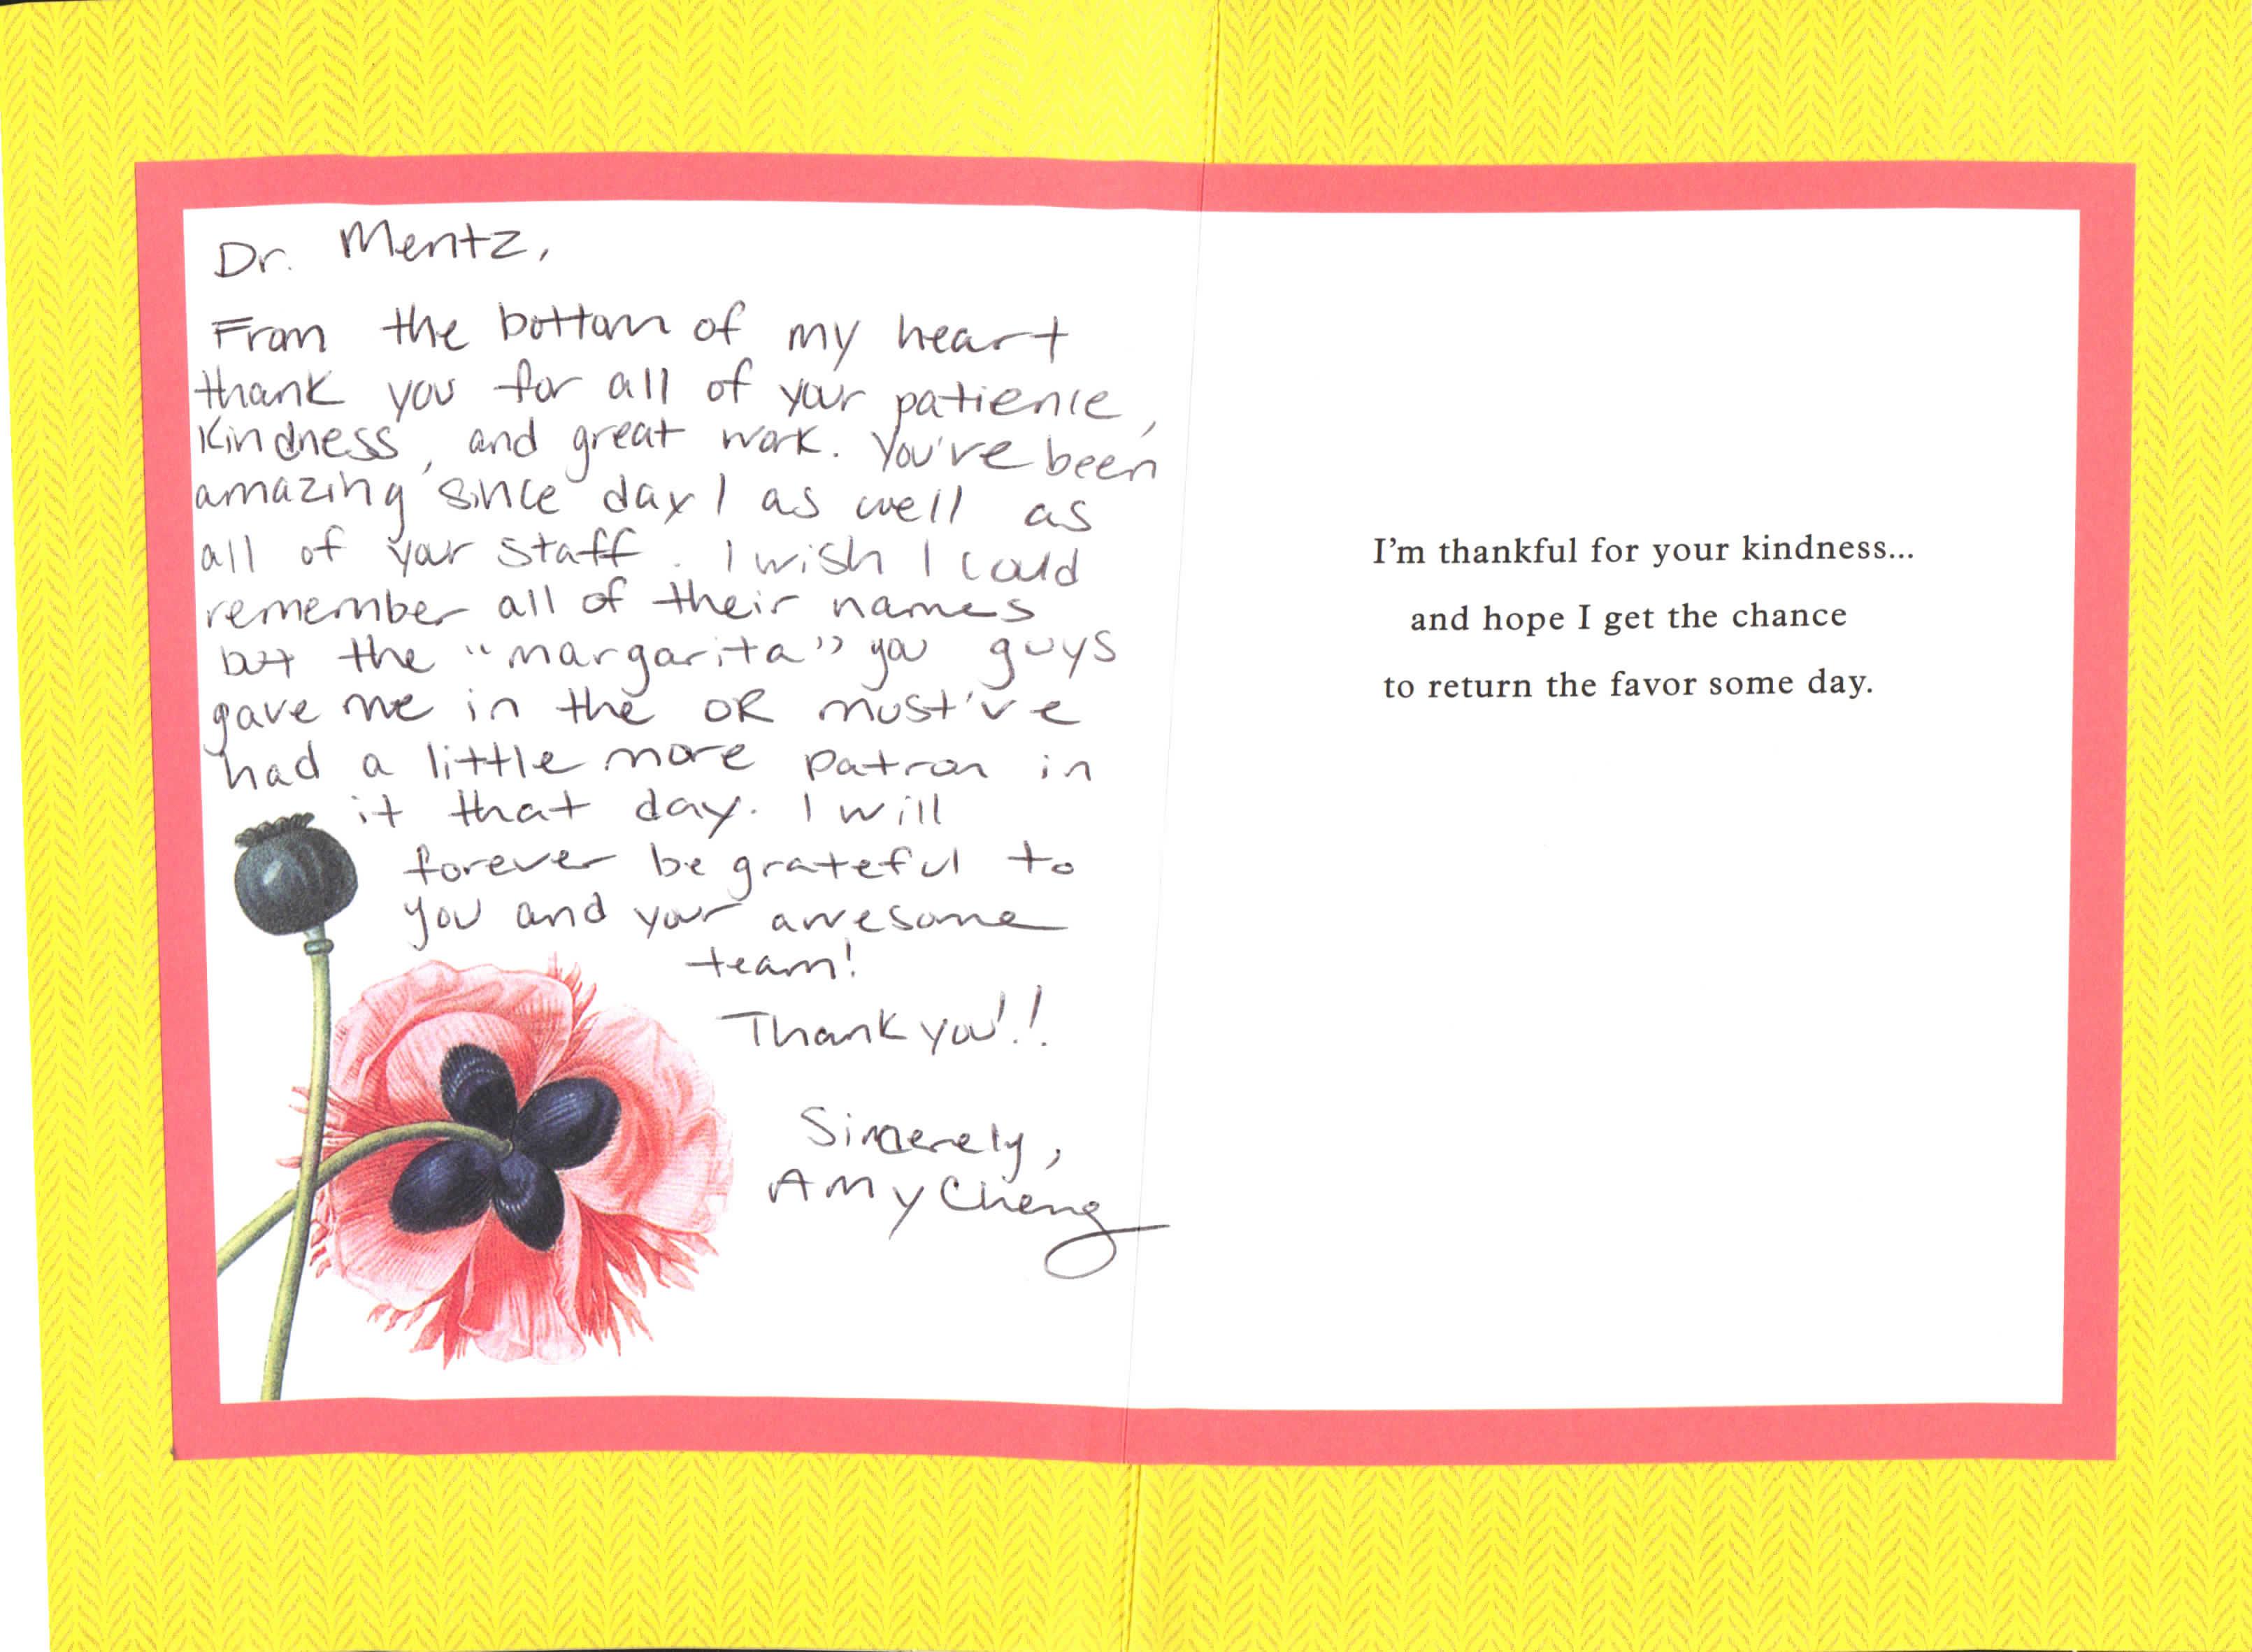 Dr. Mentz,
From the bottom of my heart
thank you for all of your patience,
kindness, and great work. You've been
amazing since day 1 as well as
all of your staff. I wish I could
remember all of their names
but the "margarita" you guys
gave me in the OR must've
had a little more patron in
it that day. I will
forever be grateful to
you and your awesome
team!
Thank you!!
Sincerely,
Amy Cheng
I'm thankful for your kindness...
and hope I get the chance
to return the favor some day.